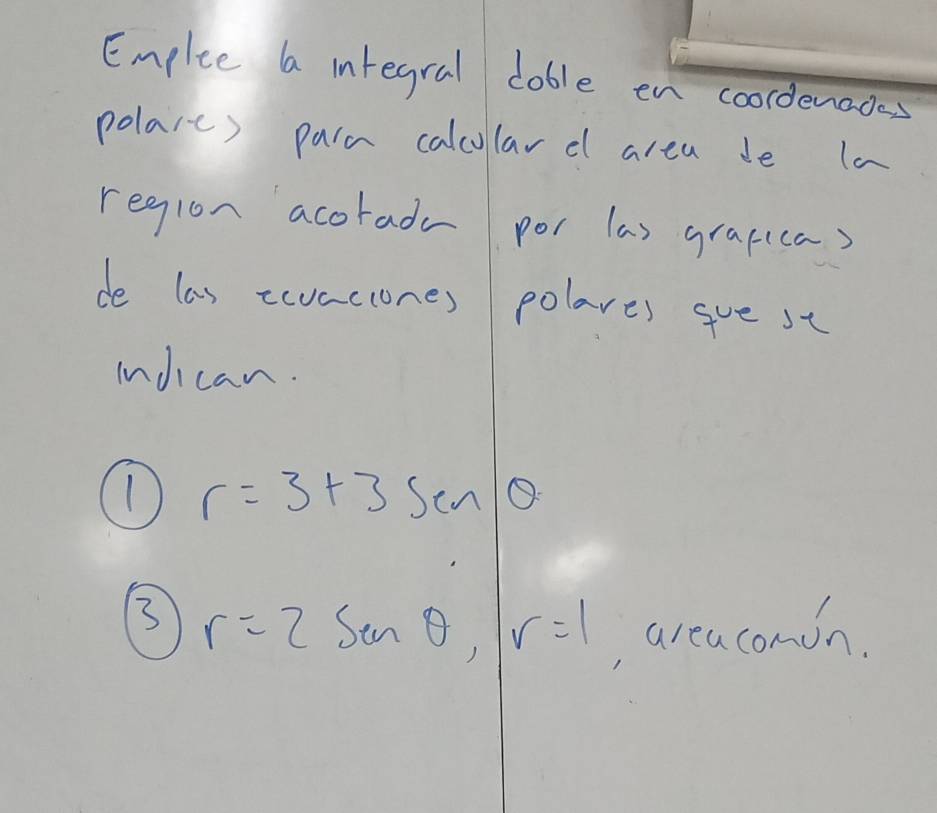 Emplee la integral doble en coordenadas
polares para calcular el area de la
region acotada por las graficas
de las ecuaciones polares que se
indican.
① r = 3 + 3 Sen θ
③ r = 2 Sen θ, r = 1, area común.